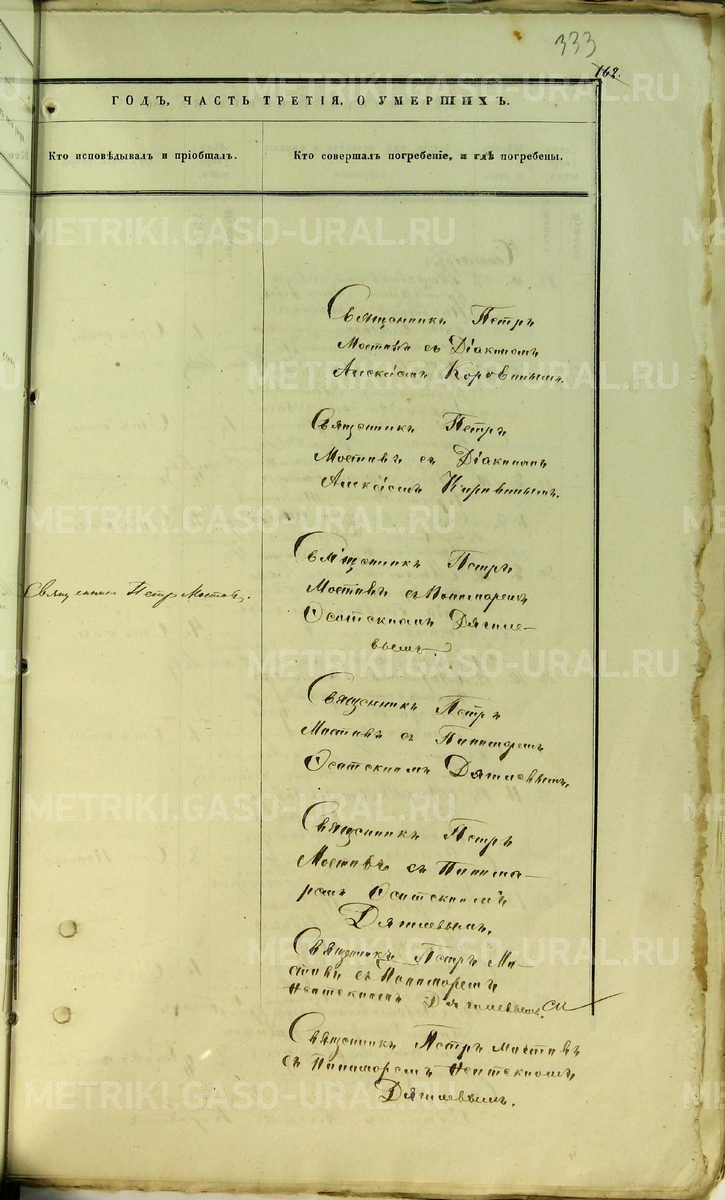 333
162.
ГОДЪ, ЧАСТЬ ТРЕТІЯ, О УМЕРШИХЪ.
Кто исповѣдывалъ и пріобщалъ.
Кто совершалъ погребеніе, и гдѣ погребены.
Священникъ Петръ
Мостовъ съ Діакономъ
Алексіемъ Коровинымъ.
Священникъ Петръ
Мостовъ съ Діакономъ
Алексіемъ Коровинымъ.
Священникъ Петръ Мостовъ.
Священникъ Петръ
Мостовъ съ Пономаремъ
Дягиле-
вымъ.
Священникъ Петръ
Мостовъ съ Пономаремъ
Дягилевымъ.
Священникъ Петръ
Мостовъ съ Понома-
ремъ
Дягилевымъ.
Священникъ Петръ Мо-
стовъ съ Пономаремъ
Дягилевымъ.
Священникъ Петръ Мостовъ
съ Пономаремъ
Дягилевымъ.
METRIKI.GASO-URAL.RU